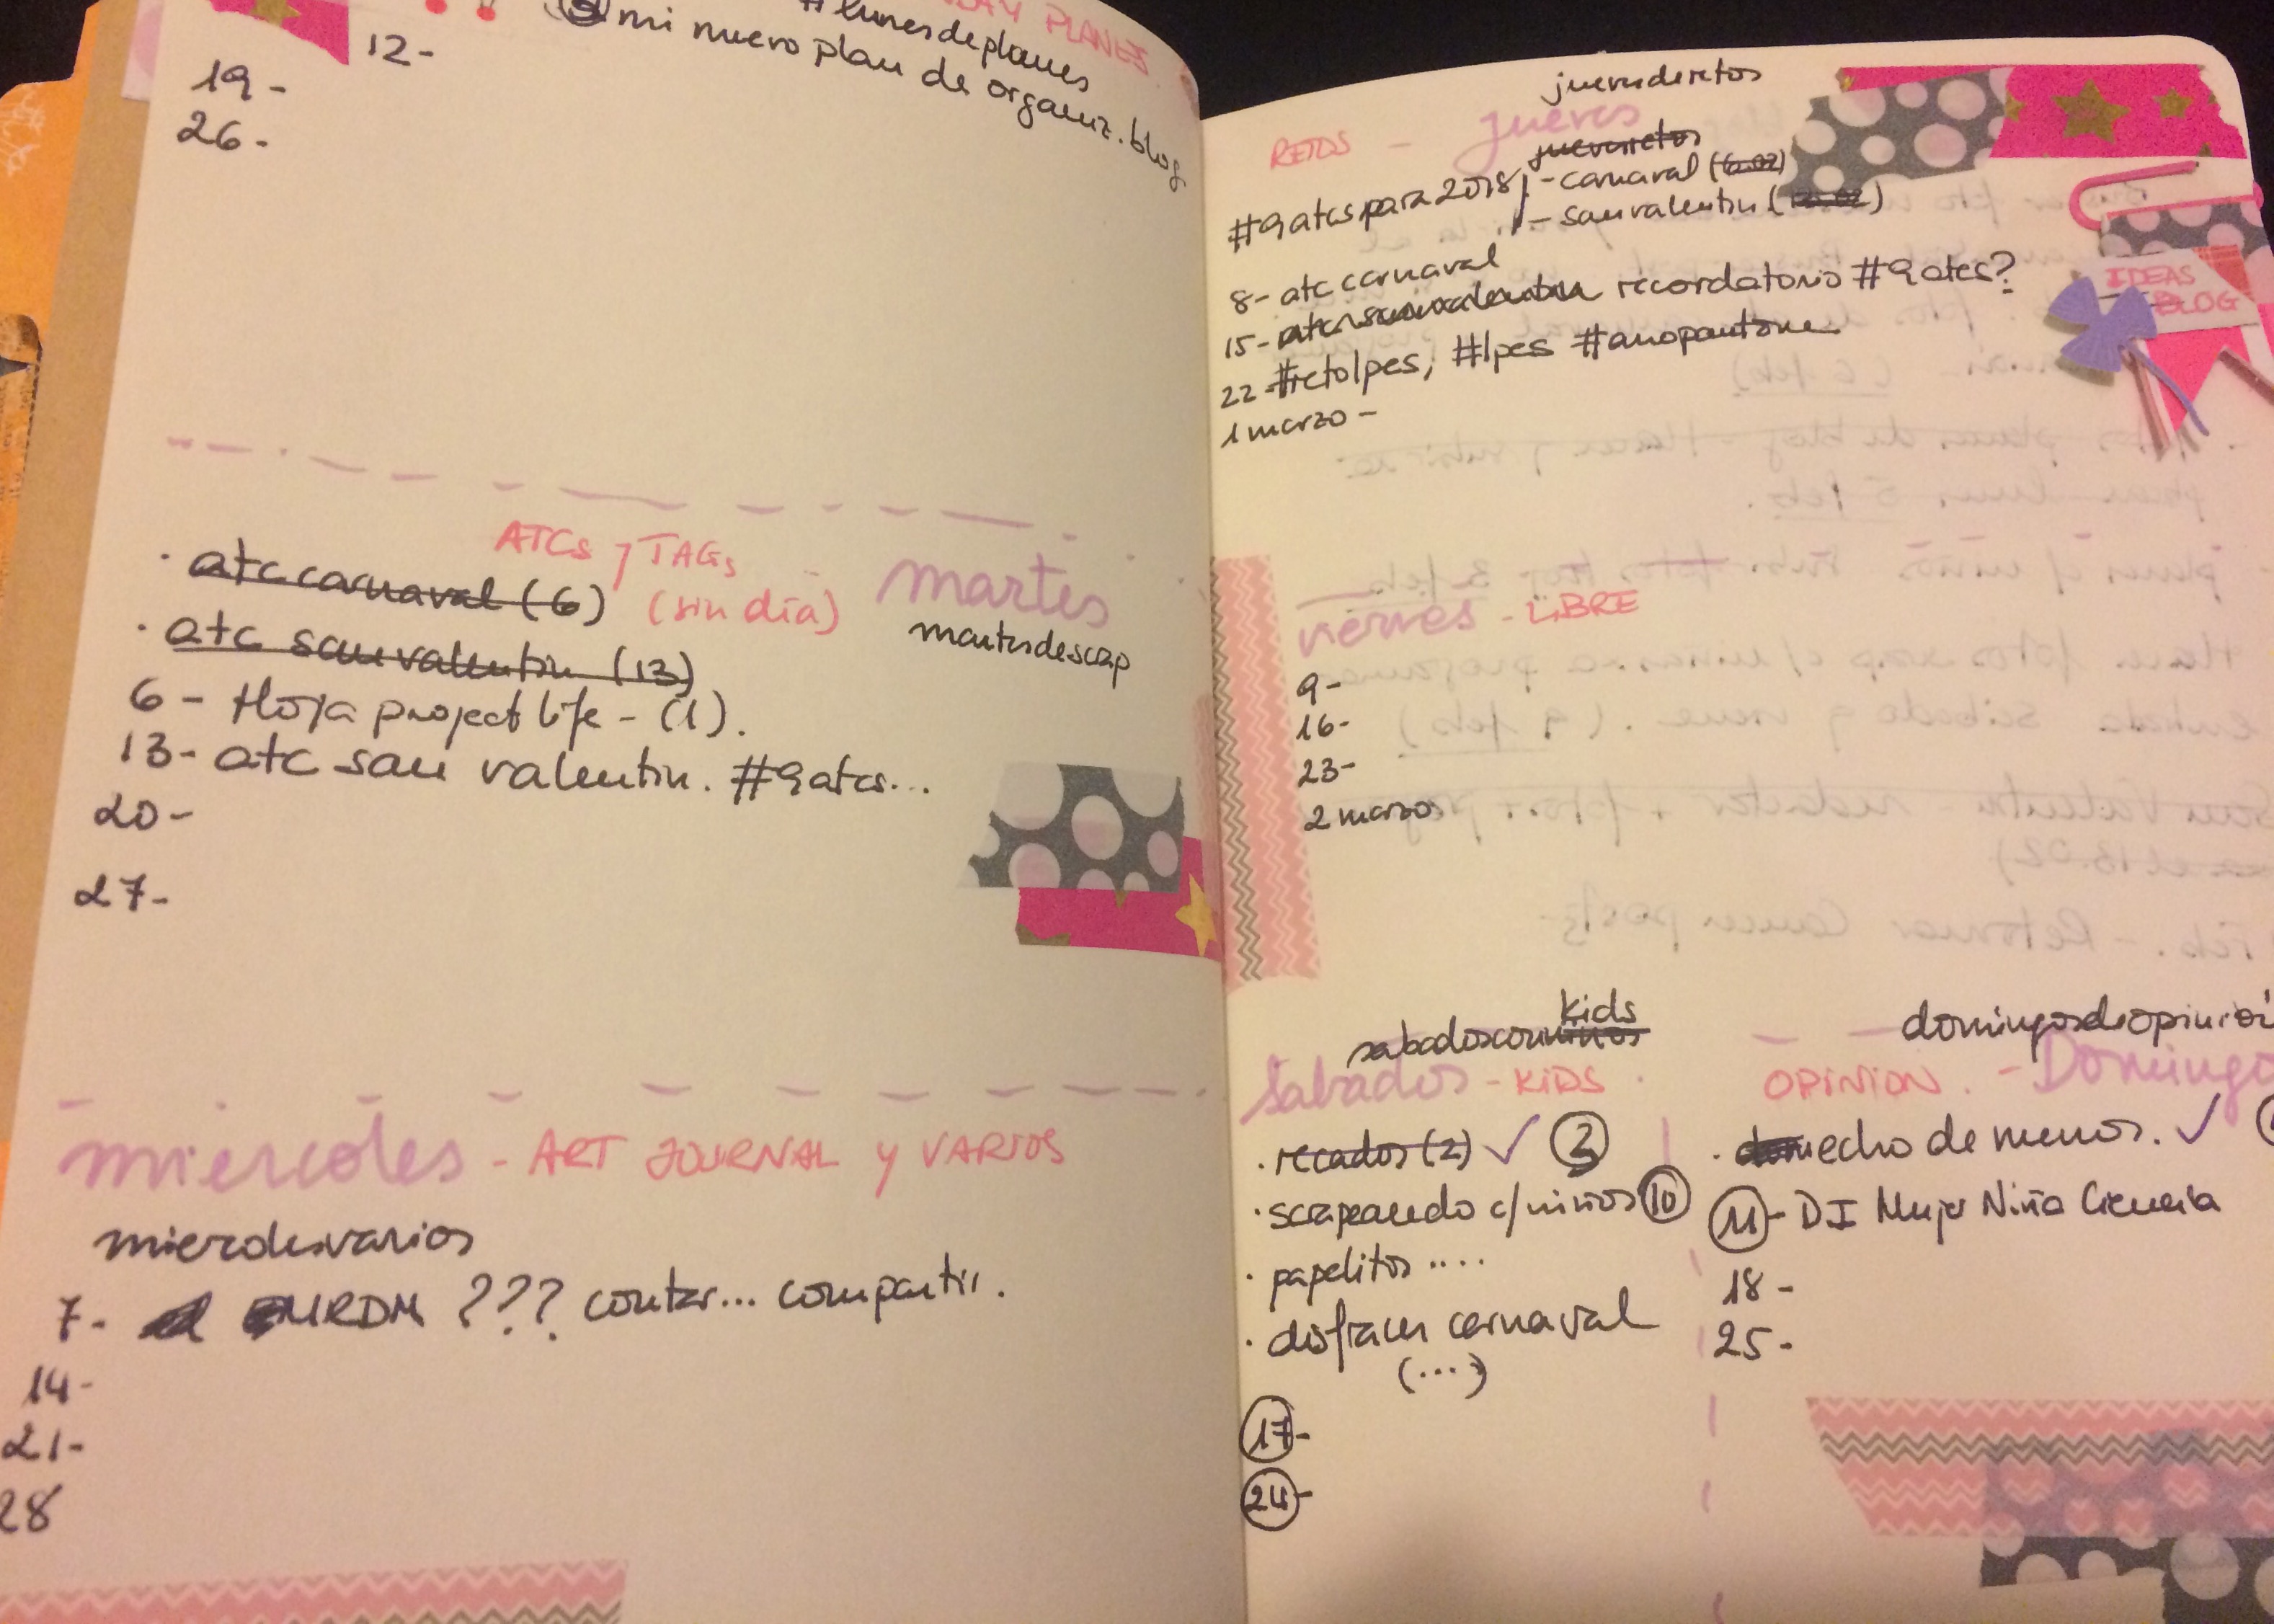 PLANES
#lunesdeplanes
5 mi nuevo plan de organiz. blog
12-
19-
26-
ATCs y TAGs
(sin día)
martes
martesdescap
· atc carnaval (6)
· atc san valentin (13)
6 - Hoja project life - (1).
13- atc san valentin. #9atcs...
20-
27-
miercoles - ART JOURNAL y VARIOS
miercolesvarios
7- MRDM ??? contar... compartir.
14-
21-
28
juevesderetos
RETOS - jueves
juevesretos
#9atcspara2018 - carnaval (6.02)
- san valentin (13.02)
8- atc carnaval
15- atc sanvalentin recordatorio #9atcs?
22- #retolpes, #lpes #anopantone
1 marzo -
IDEAS
BLOG
viernes - LIBRE
9-
16-
23-
2 marzo
Kids
sabadosconninos
Sabados - KIDS
· recados (2) ✓ 3
· scrapeando c/niños 10
· papelitos ....
· disfraces carnaval
(...)
17-
24-
domingosdeopinió
OPINION. - Domingo
· echo de menos. ✓
11- DI Mujer Niña Ciencia
18 -
25 -